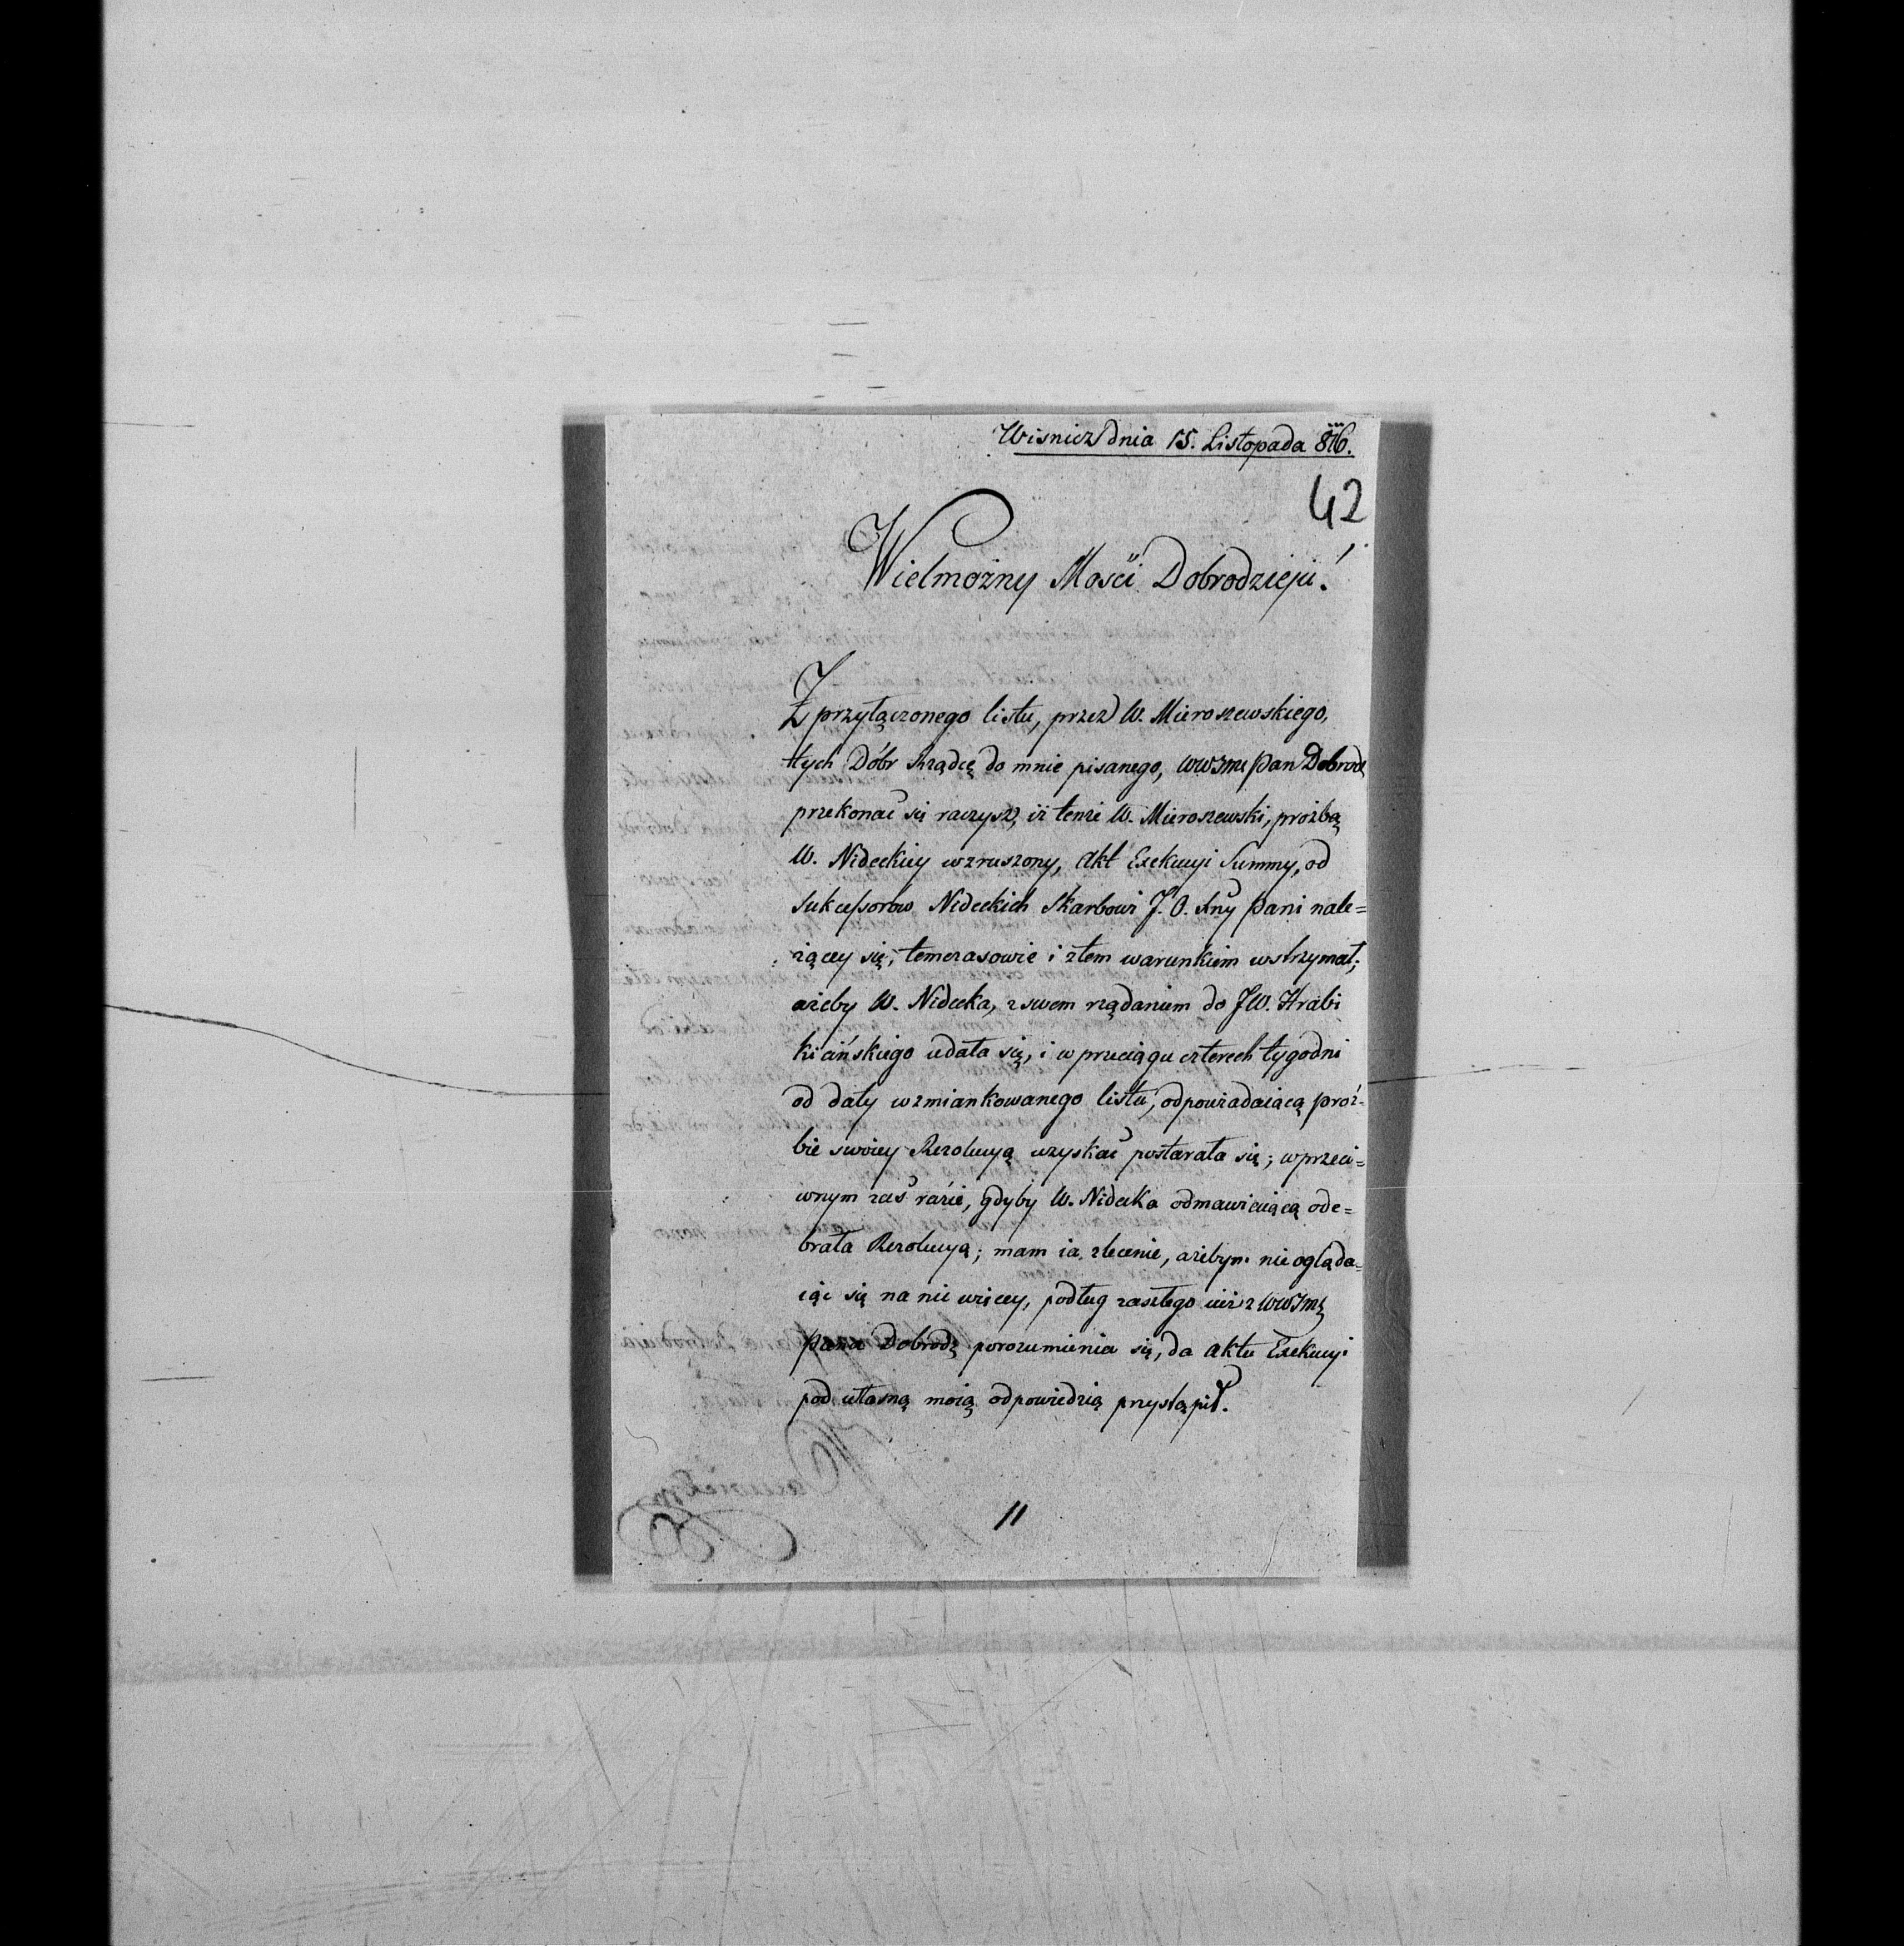 Wisnicz dnia 15. Listopada 816.
42
Wielmożny Mości Dobrodzieju!
Z przyłączonego listu, przez W. Mieroszewskiego,
tych Dóbr Rządcę do mnie pisanego, WWJMć Pan Dobrodź
przekonać się raczysz, iż tenże W. Mieroszewski, proźbą
W. Nideckiey wzruszony, Akt Exekucyi Summy, od
Sukcessorow Nideckich Skarbowi J. O. Xny Pani nale=
żącey się, temczasowie i ztem warunkiem wstrzymał;
ażeby W. Nidecka, z swem żądaniem do JW. Hrabi
Kicińskiego udała się, i w przeciągu czterech tygodni
od daty wzmiankowanego listu, odpowiadaiącą proź-
bie swoiey Rezolucyą uzyskać postarała się; w przeci=
wnym zaś razie, gdyby W. Nidecka odmawiaiącą ode=
brała Rezolucyą; mam ia zlecenie, ażebym nie ogląda=
iąc się na nic więcey, podług zaszłego iuż z WWJMć
Panu Dobrodź porozumienia się, do aktu Exekucyi
pod własną moią odpowiedzią przystąpił.
11